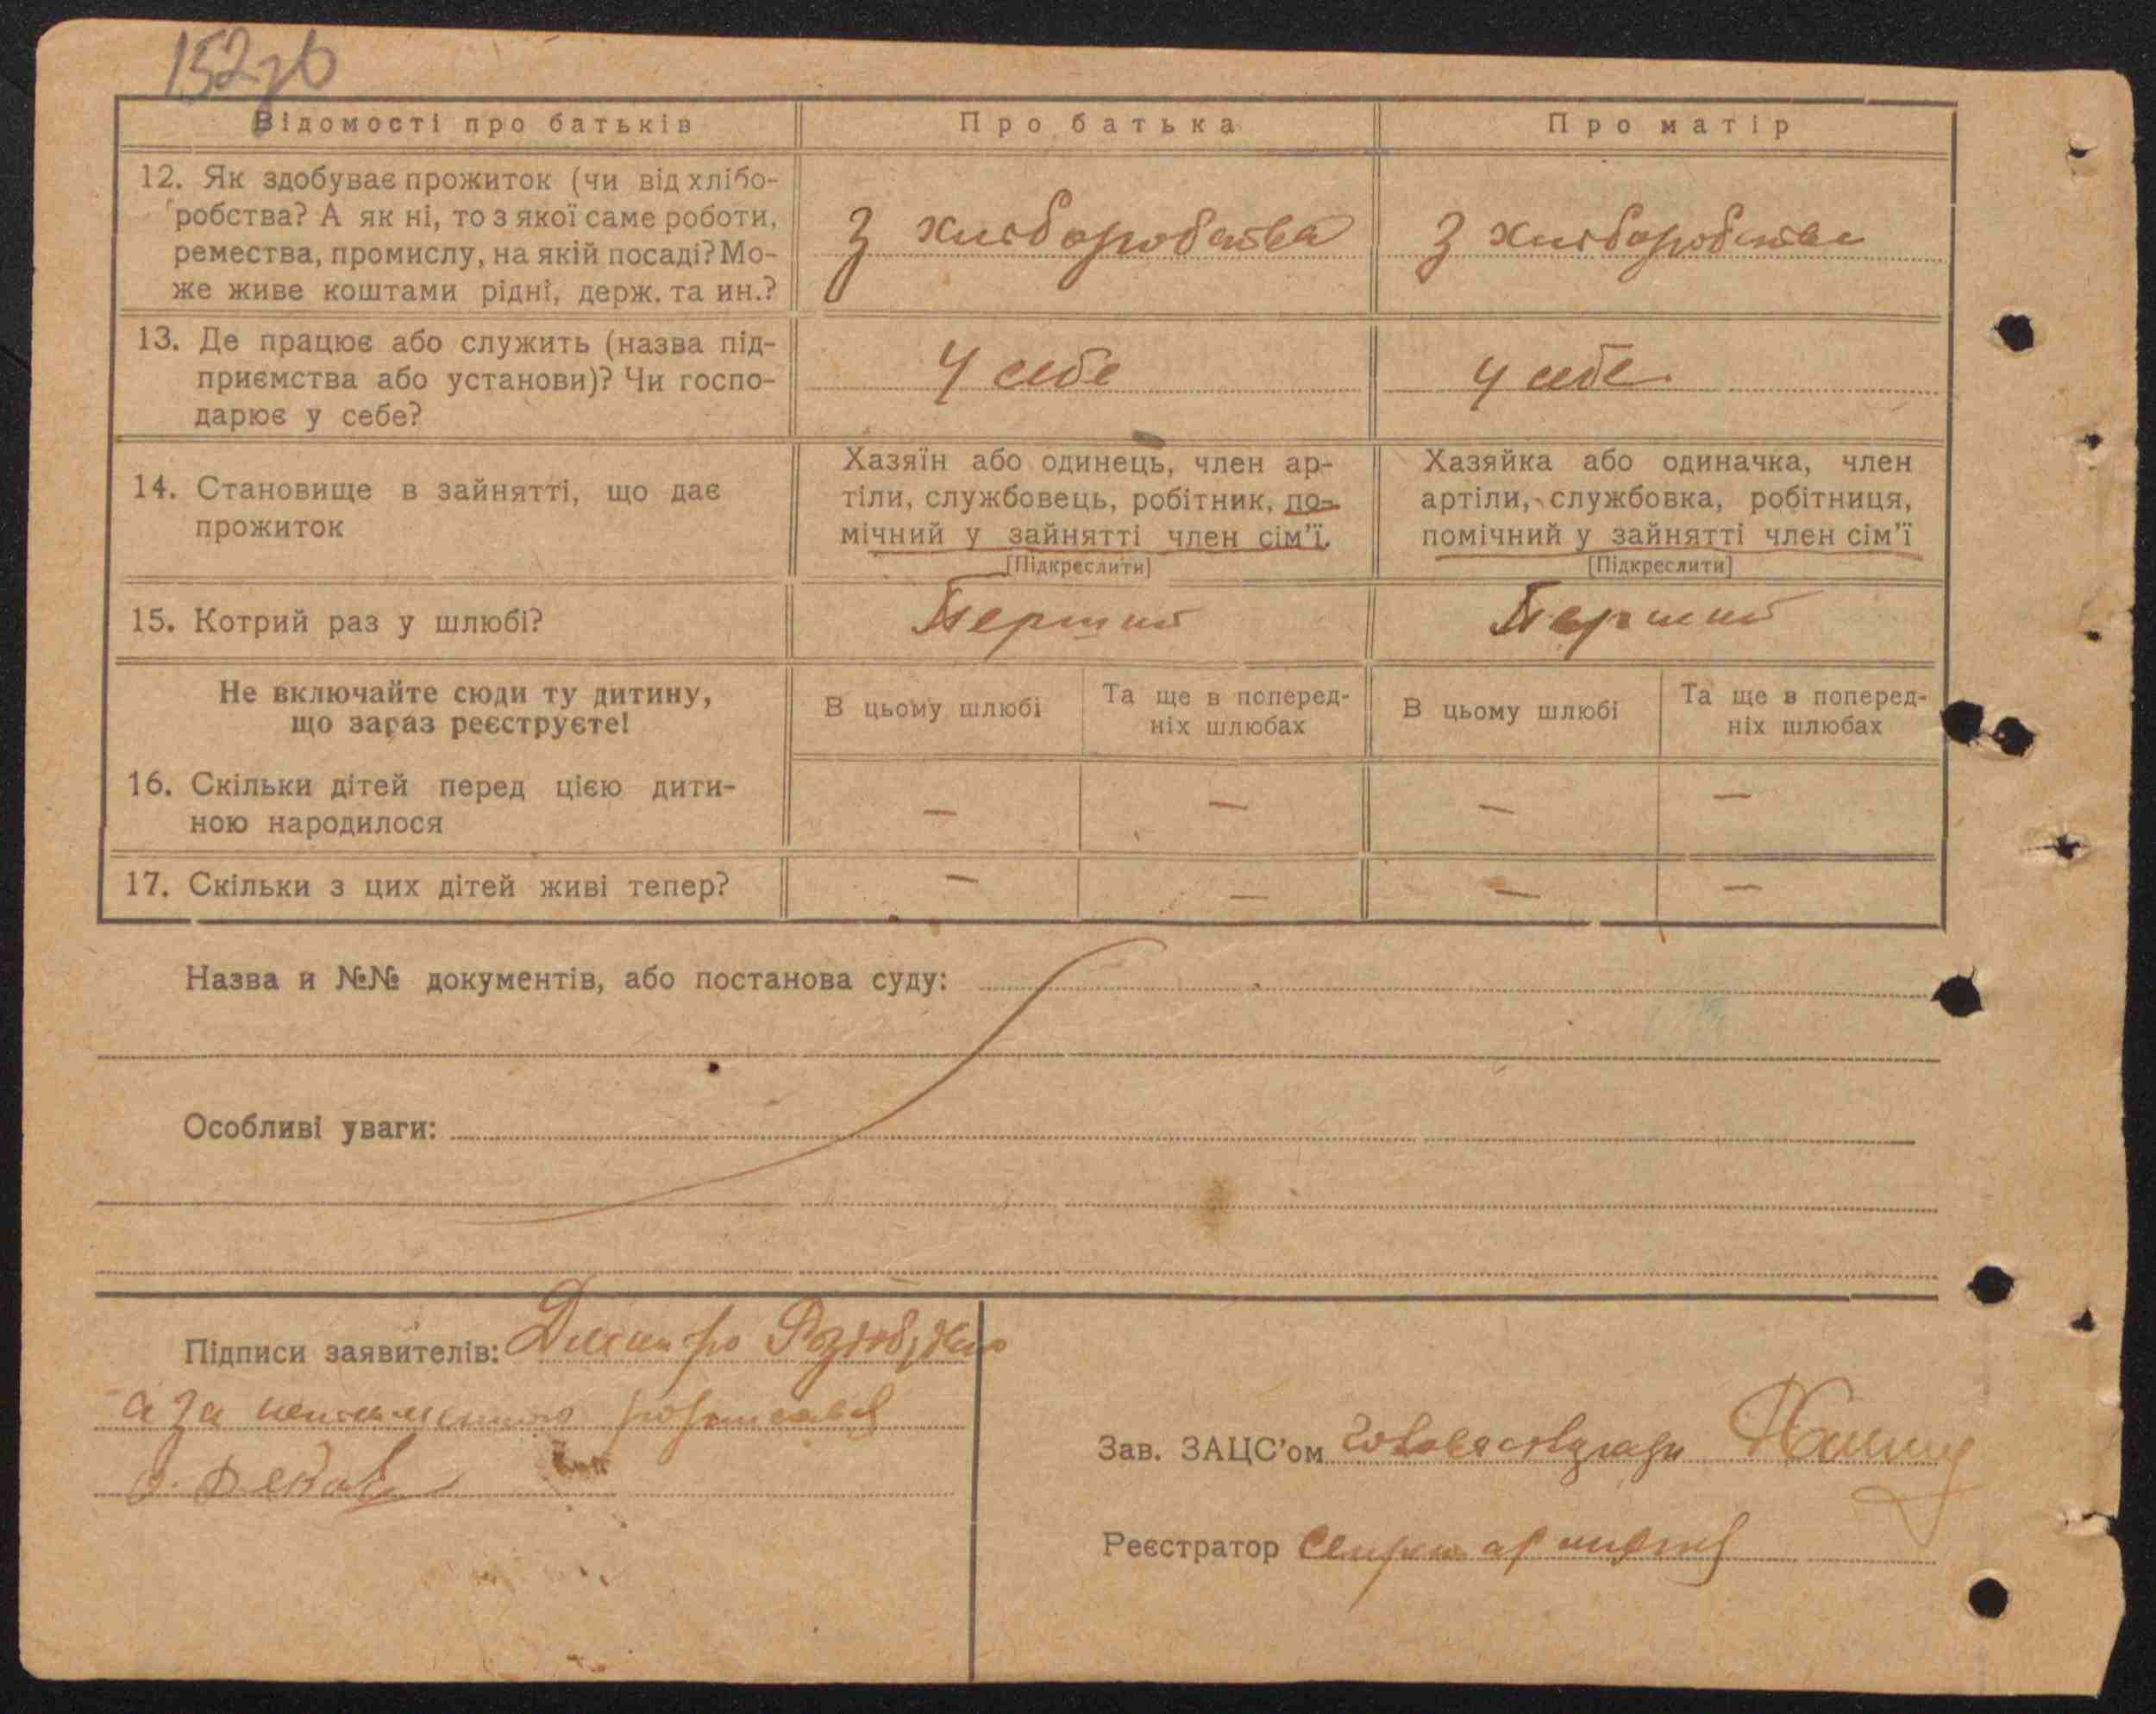 152зв
Відомості про батьків
Про батька
Про матір
12. Як здобуває прожиток (чи від хлібо-
робства? А як ні, то з якої саме роботи,
ремества, промислу, на якій посаді? Мо-
же живе коштами рідні, держ. та ин.?
З хліборобства
З хліборобства
13. Де працює або служить (назва під-
приємства або установи)? Чи госпо-
дарює у себе?
У себе
У себе
14. Становище в зайнятті, що дає
прожиток
Хазяїн або одинець, член ар-
тіли, службовець, робітник, по-
мічний у зайнятті член сім'ї.
[Підкреслити]
Хазяйка або одиначка, член
артіли, службовка, робітниця,
помічний у зайнятті член сім'ї
[Підкреслити]
15. Котрий раз у шлюбі?
Перший
Перший
Не включайте сюди ту дитину,
що зараз реєструєте!
В цьому шлюбі
Та ще в поперед-
ніх шлюбах
В цьому шлюбі
Та ще в поперед-
ніх шлюбах
16. Скільки дітей перед цією дити-
ною народилося
— — — —
17. Скільки з цих дітей живі тепер?
— — — —
Назва и №№ документів, або постанова суду:
Особливі уваги:
Підписи заявителів: Дмитро
а за неписьменного розписався
Зав. ЗАЦС'ом Голова сільради
Реєстратор Секретар